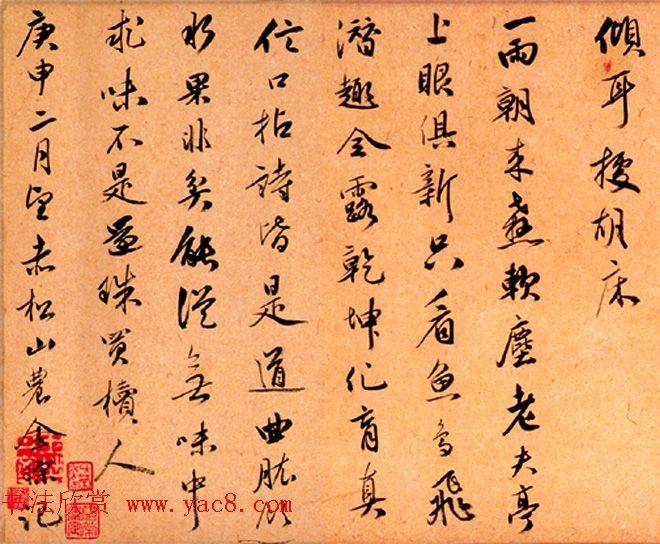 傾耳據胡床
一雨朝來軟塵老夫亭
上眼俱新只看魚鳥飛
潛趣全露乾坤化育真
信口拈詩皆是道曲肱飲
水果非貧能從無味中
求味不是還珠買櫝人
庚申二月望赤松山農金湜記
书法欣赏 www.yac8.com